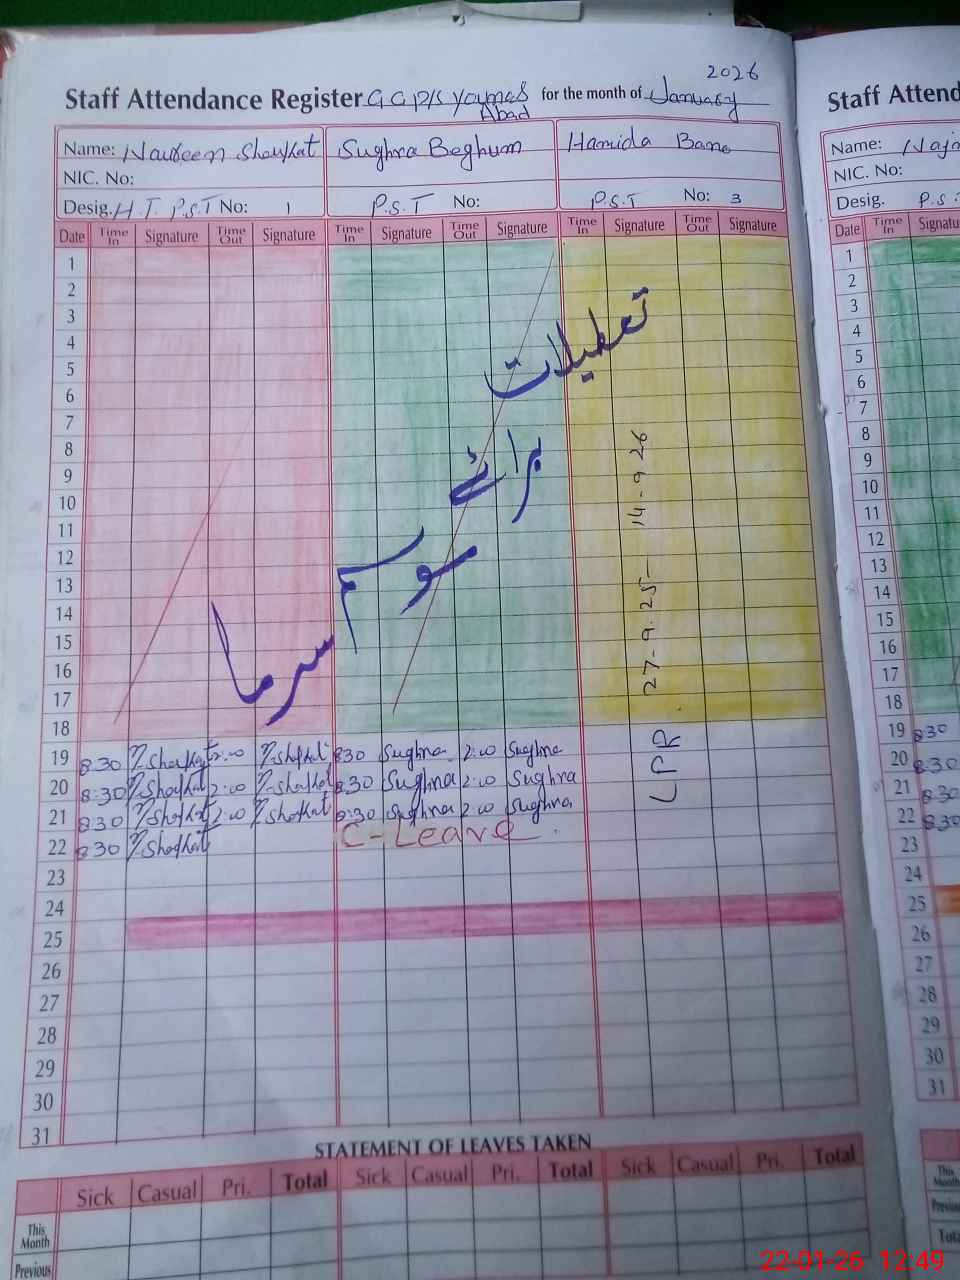 2026
Staff Attendance Register G G P/S Younas Abad for the month of January
Name: Naureen Shaukat Sughra Beghum Hamida Bano
NIC. No:
Desig. H.T. P.S.T No: 1 P.S.T No: P.S.T No: 3
Date Time In Signature Time Out Signature Time In Signature Time Out Signature Time In Signature Time Out Signature
1
2
3
4
5
6
7
8
9
10
11
12
13
14
15
16
17
18
تعطیلات
برائے
موسم
سرما
LPR. 27-9.25- 14-9 26
19 8:30 N.Shaukat 2:00 N.Shaukat 8:30 Sughra 2:00 Sughra
20 8:30 N.Shaukat 2:00 N.Shaukat 8:30 Sughra 2:00 Sughra
21 8:30 N.Shaukat 2:00 N.Shaukat 8:30 Sughra 2:00 Sughra
22 8:30 N.Shaukat C-Leave.
23
24
25
26
27
28
29
30
31
STATEMENT OF LEAVES TAKEN
Sick Casual Pri. Total Sick Casual Pri. Total Sick Casual Pri. Total
This Month
Previous
Staff Attend
Name:
NIC. No:
Desig. P.S.
Date Time In Signatu
1
2
3
4
5
6
7
8
9
10
11
12
13
14
15
16
17
18
19 8:30
20 8:30
21 8:30
22 8:30
23
24
25
26
27
28
29
30
31
This Month
Previou
Tota
22-01-26 12:49